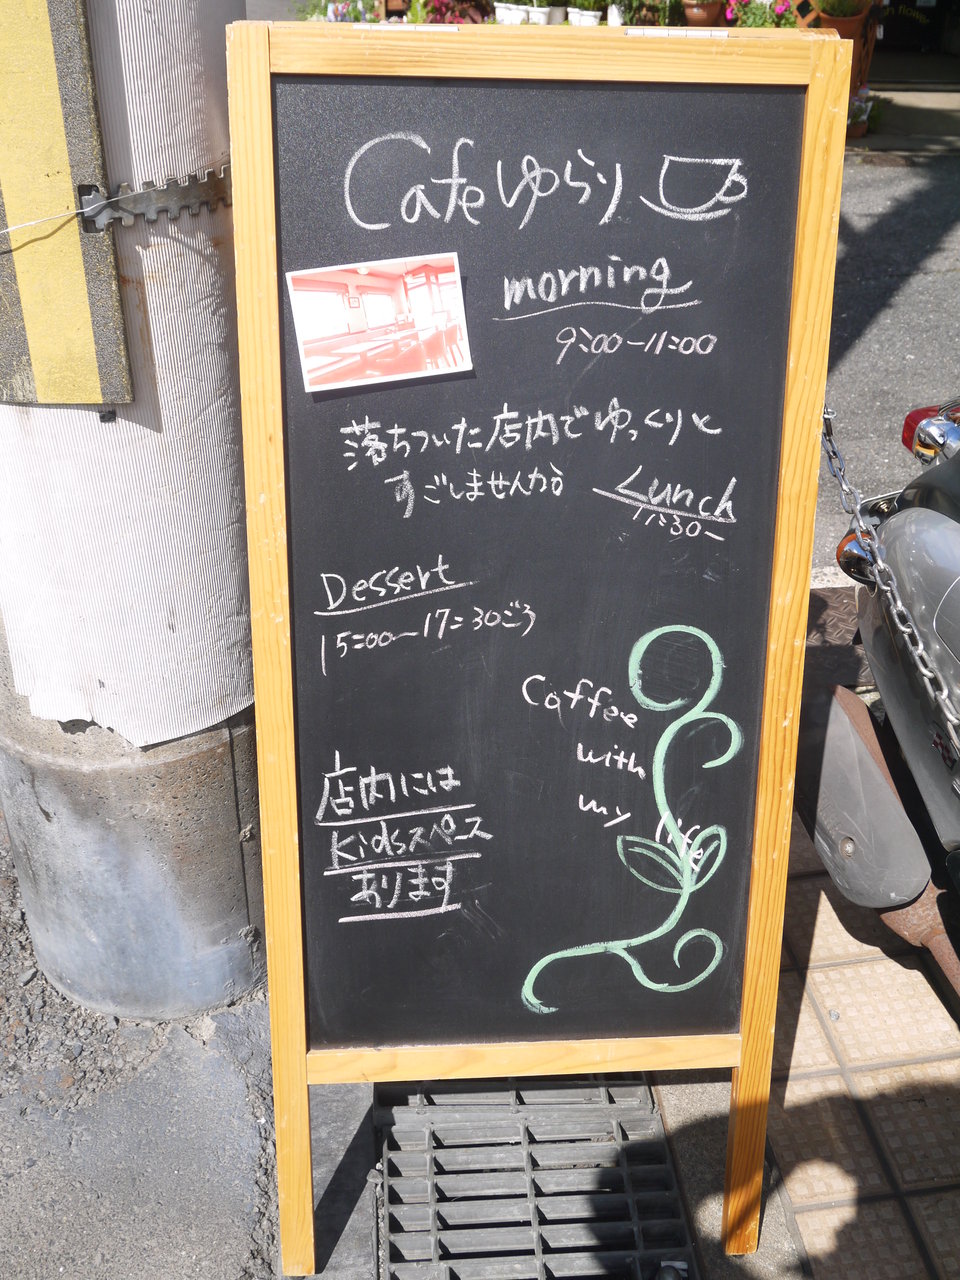 Cafe ゆらり
morning
9:00-11:00
落ちついた店内でゆっくりと
すごしませんか
Lunch
11:30~
Dessert
15:00~17:30ごろ
Coffee
with
my
life
店内には
Kidsスペース
あります